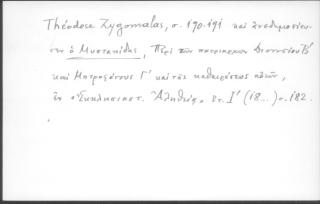 Théodose Zygomalas, σ. 190.191 καὶ ἐνεδημοσίευ-
σεν ὁ Μυστακίδης, Περὶ τῶν πατριαρχῶν Διονυσίου Β′
καὶ Μητροφάνους Γ′ καὶ τῆς καθαιρέσεως αὐτῶν,
ἐν Ἐκκλησιαστ. Ἀληθείᾳ, ἔτ. Ι′ (18...) σ. 182.